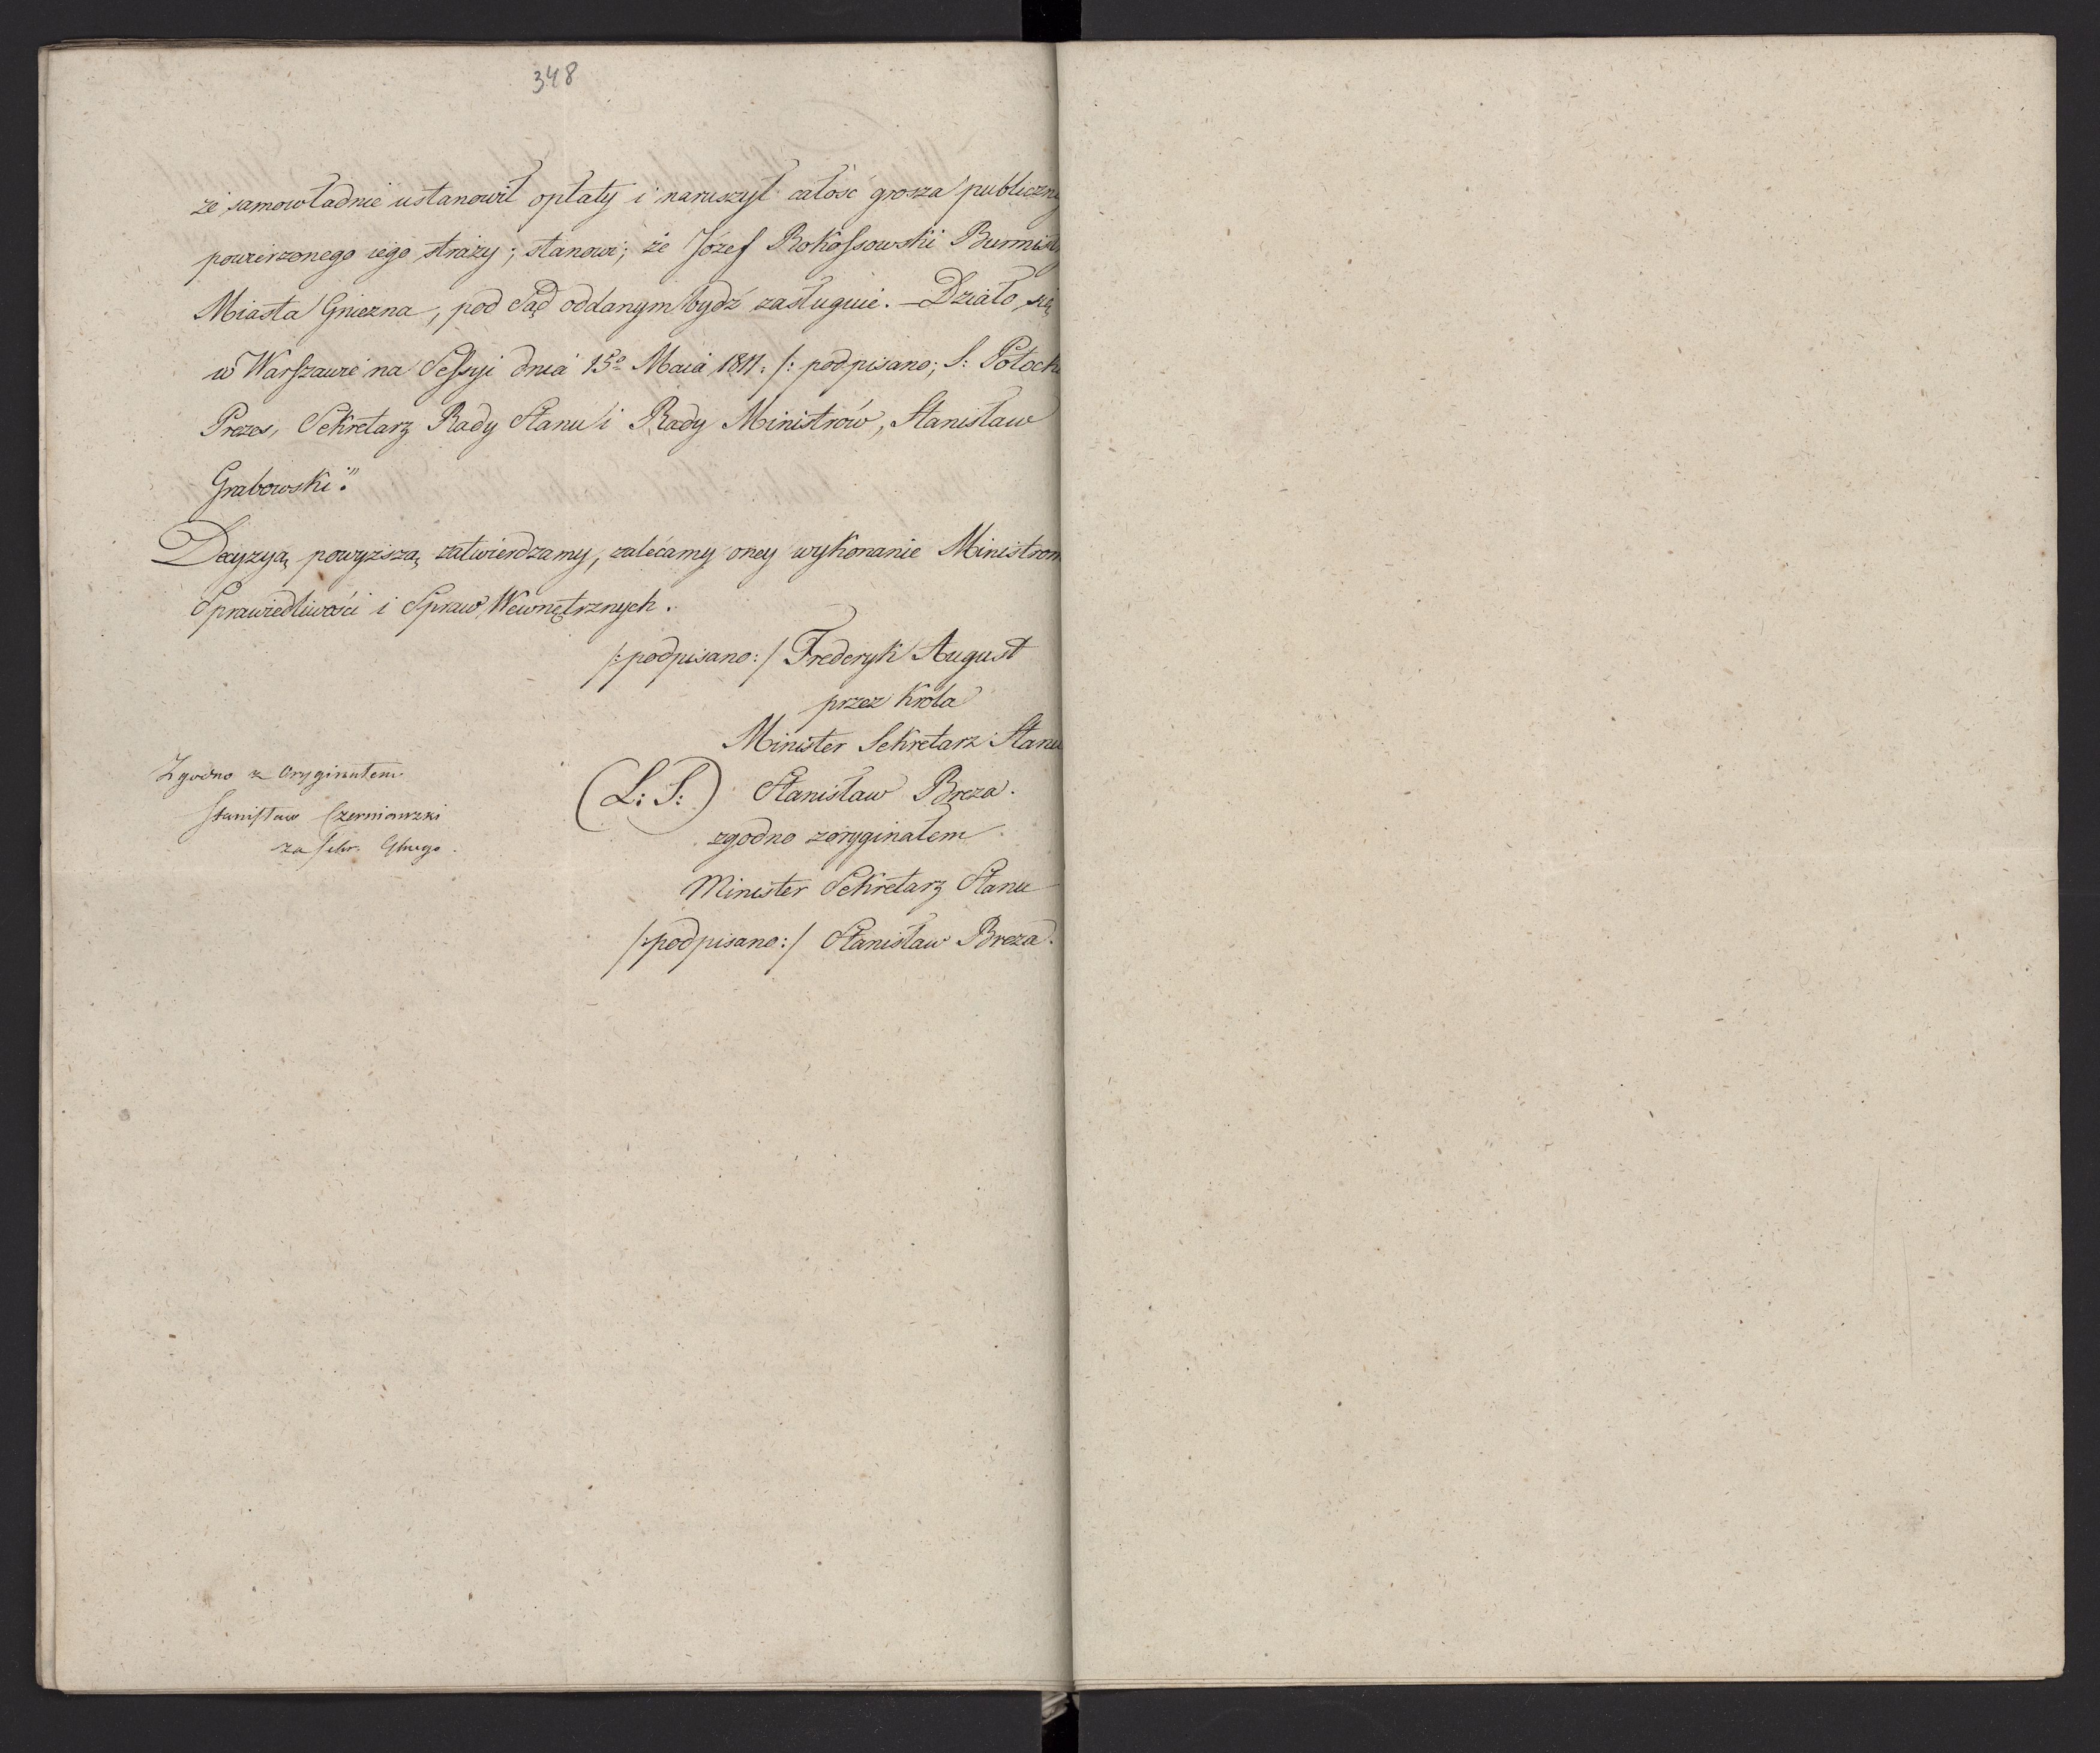 348
że samowładnie ustanowił opłaty i naruszył całość grosza publiczne
powierzonego iego straży; stanowi; że Józef Rokossowski Burmist
Miasta Gniezna, pod Sąd oddanym bydź zasługuie. – Działo się
w Warszawie na Sessyi dnia 15º Maia 1811. /: podpisano; S: Potocki
Prezes, Sekretarz Rady Stanu i Rady Ministrów, Stanisław
Grabowski."
Decyzyą powyższą zatwierdzamy, zalecamy oney wykonanie Ministrom
Sprawiedliwości i Spraw Wewnętrznych.
/:podpisano:/ Frederyk August
przez Króla
Minister Sekretarz Stanu
(L: S:) Stanisław Breza.
zgodno z oryginałem
Minister Sekretarz Stanu
/:podpisano:/ Stanisław Breza.
Zgodno z Oryginałem
Stanisław
za Sekr.